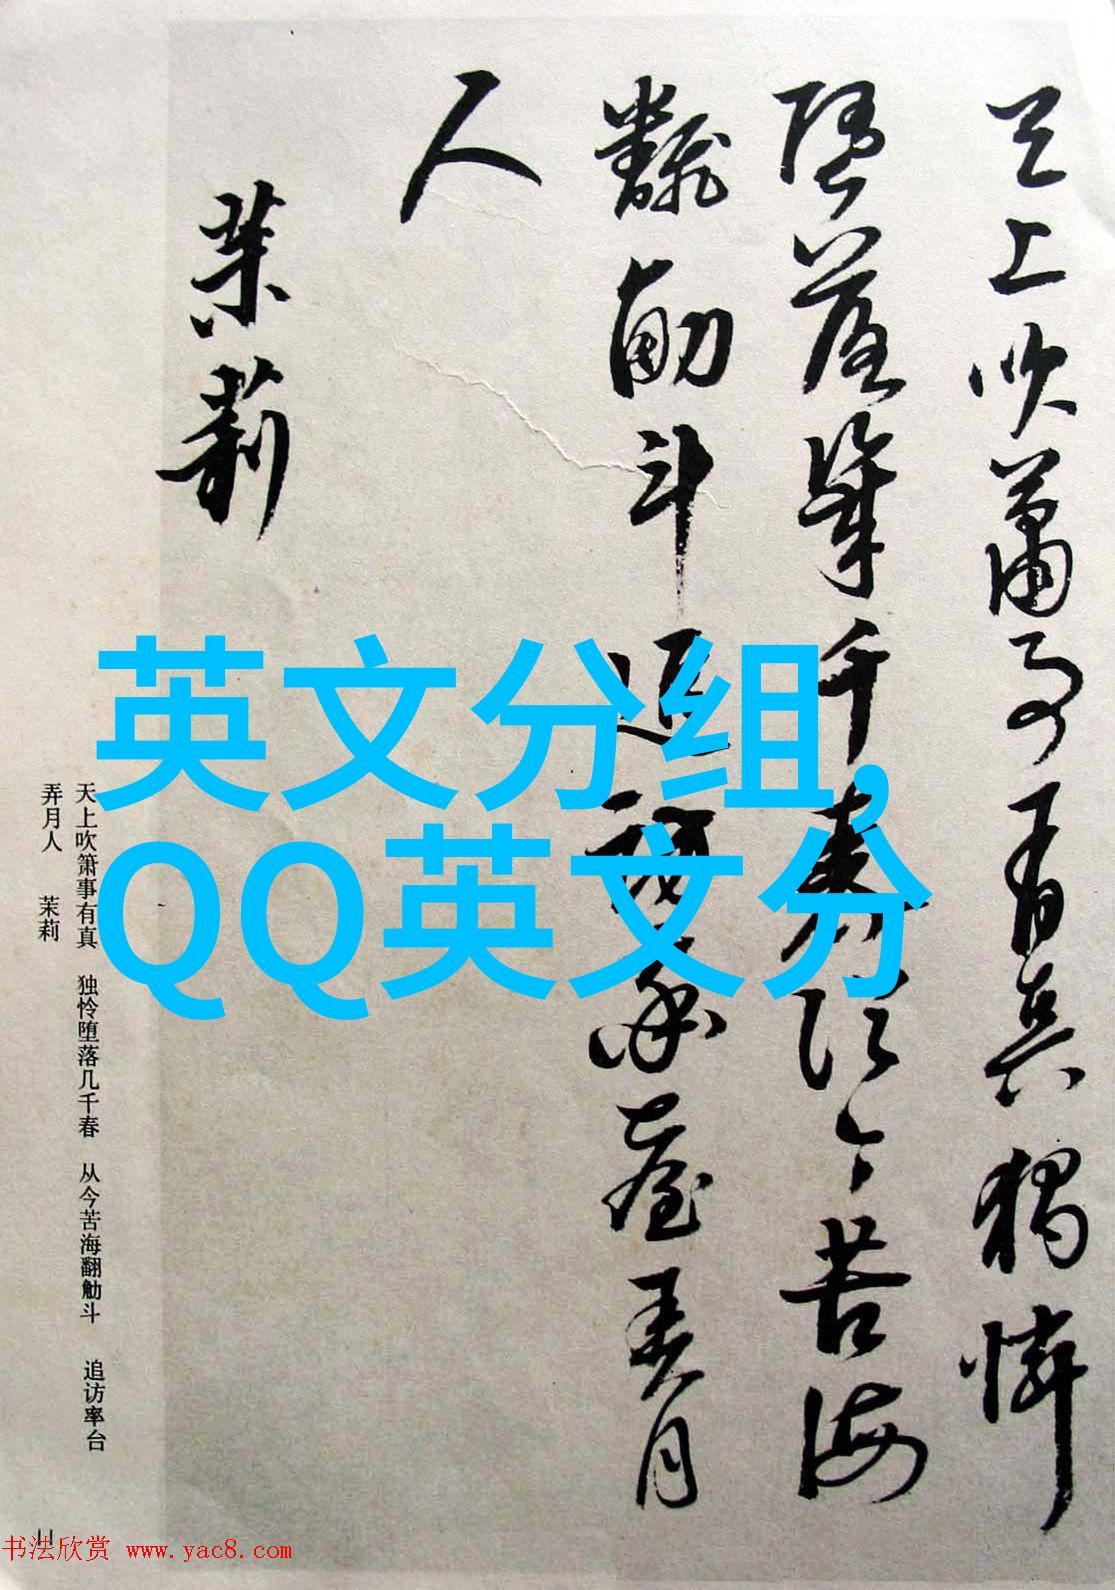 天上吹蕭事有真獨憐
墮落幾千春從今苦海
翻觔斗追訪率臺弄月
人
茉莉
英文分组,
QQ英文分
天上吹箫事有真 独怜堕落几千春 从今苦海翻觔斗 追访率台
弄月人 茉莉
11
书法欣赏 www.yac8.com